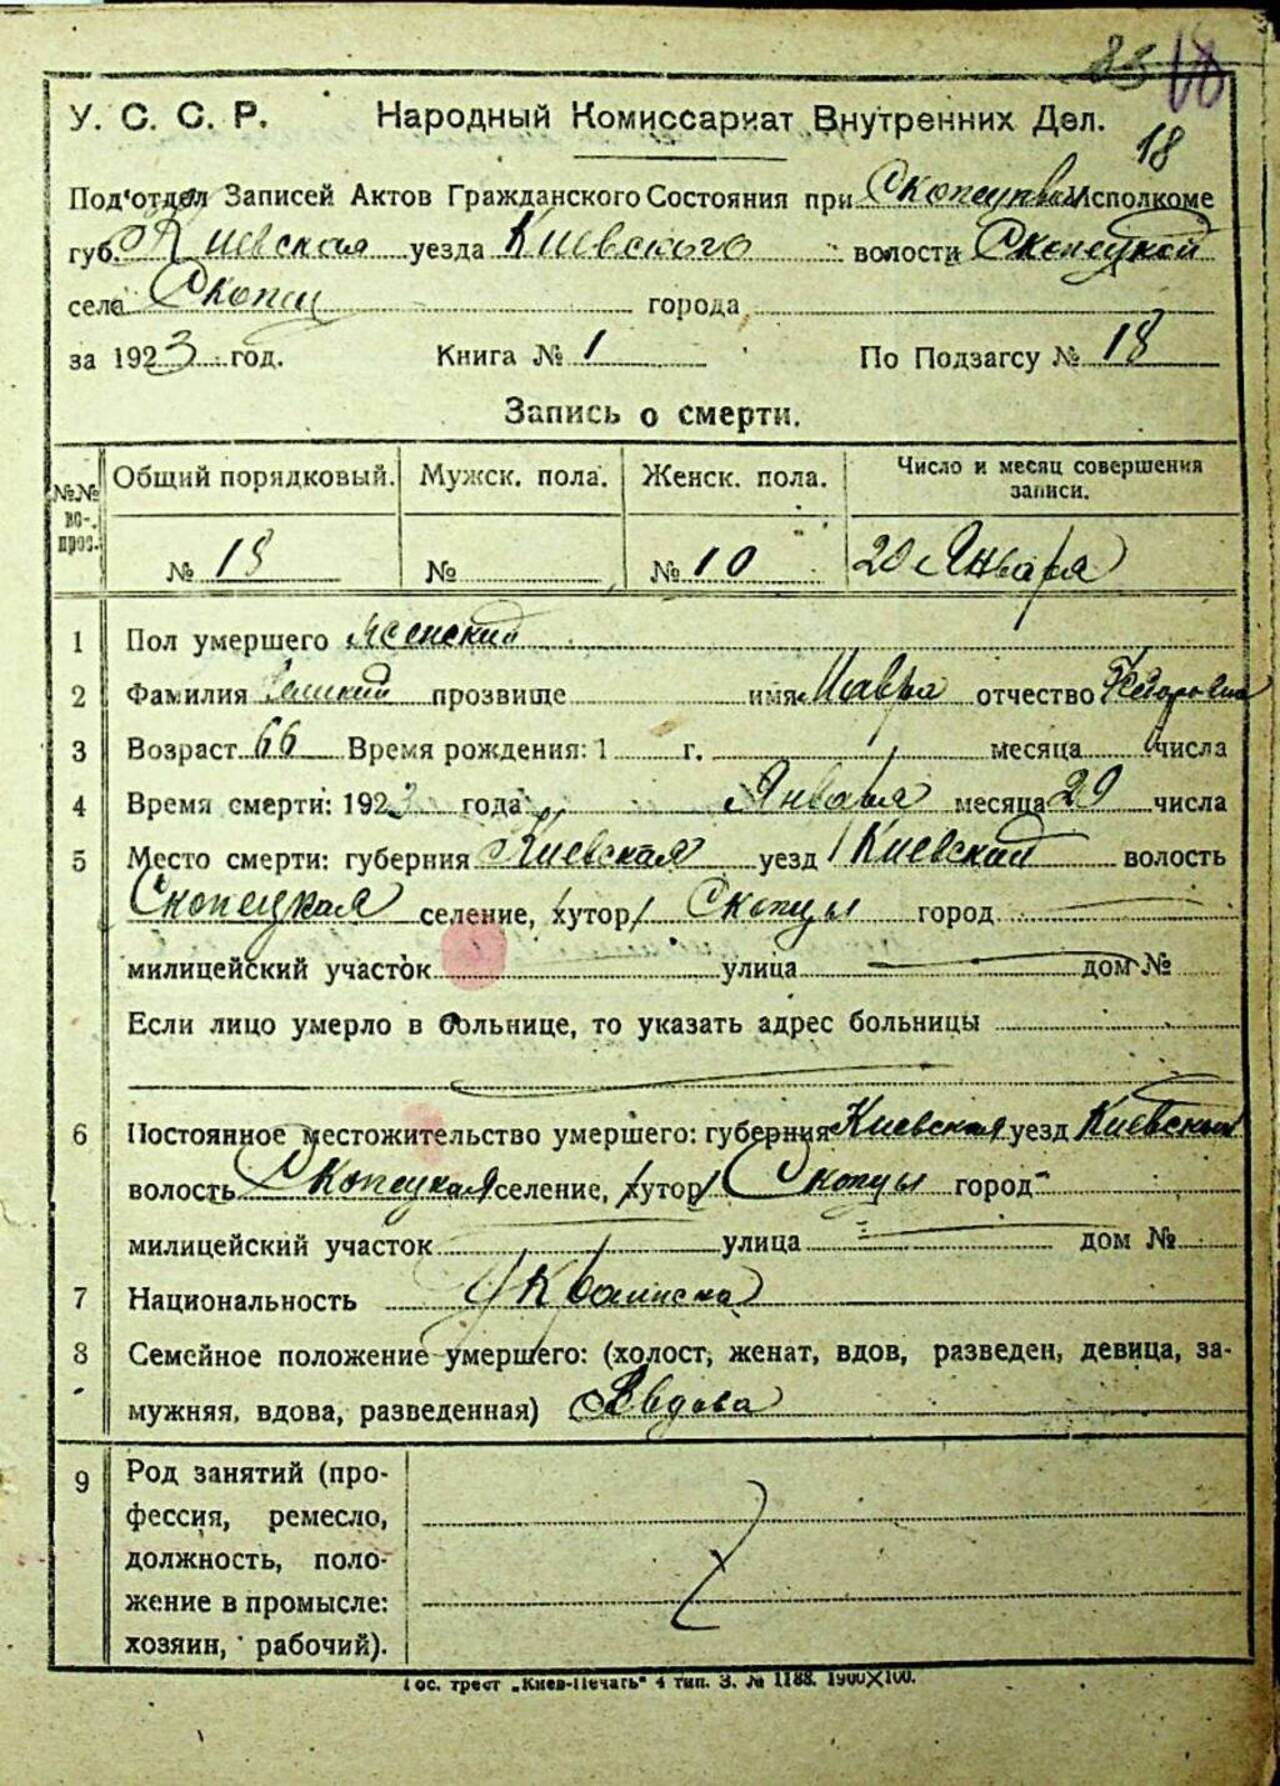 83 18
У. С. С. Р. Народный Комиссариат Внутренних Дел.
18
Под'отдел Записей Актов Гражданского Состояния при Исполкоме
губ. Киевская уезда Киевского волости Скопецкой
села Скопцы города
за 1923 год. Книга № 1 По Подзагсу № 18
Запись о смерти.
№№ во-прос. Общий порядковый. Мужск. пола. Женск. пола. Число и месяц совершения
записи.
№ 18 № № 10 20 Января
1 Пол умершего Женский
2 Фамилия прозвище имя Мавра отчество Федоровна
3 Возраст 66 Время рождения: 1 г. месяца числа
4 Время смерти: 1923 года Января месяца 20 числа
5 Место смерти: губерния Киевская уезд Киевский волость
Скопецкая селение, хутор Скопцы город
милицейский участок улица дом №
Если лицо умерло в больнице, то указать адрес больницы
6 Постоянное местожительство умершего: губерния Киевская уезд Киевский
волость Скопецкая селение, хутор Скопцы город
милицейский участок улица дом №
7 Национальность Украинска
8 Семейное положение умершего: (холост, женат, вдов, разведен, девица, за-
мужняя, вдова, разведенная) Вдова
9 Род занятий (про-
фессия, ремесло,
должность, поло-
жение в промысле:
хозяин, рабочий).
Гос. трест „Киев-Печать" 4 тип. З. № 1188. 1900X100.